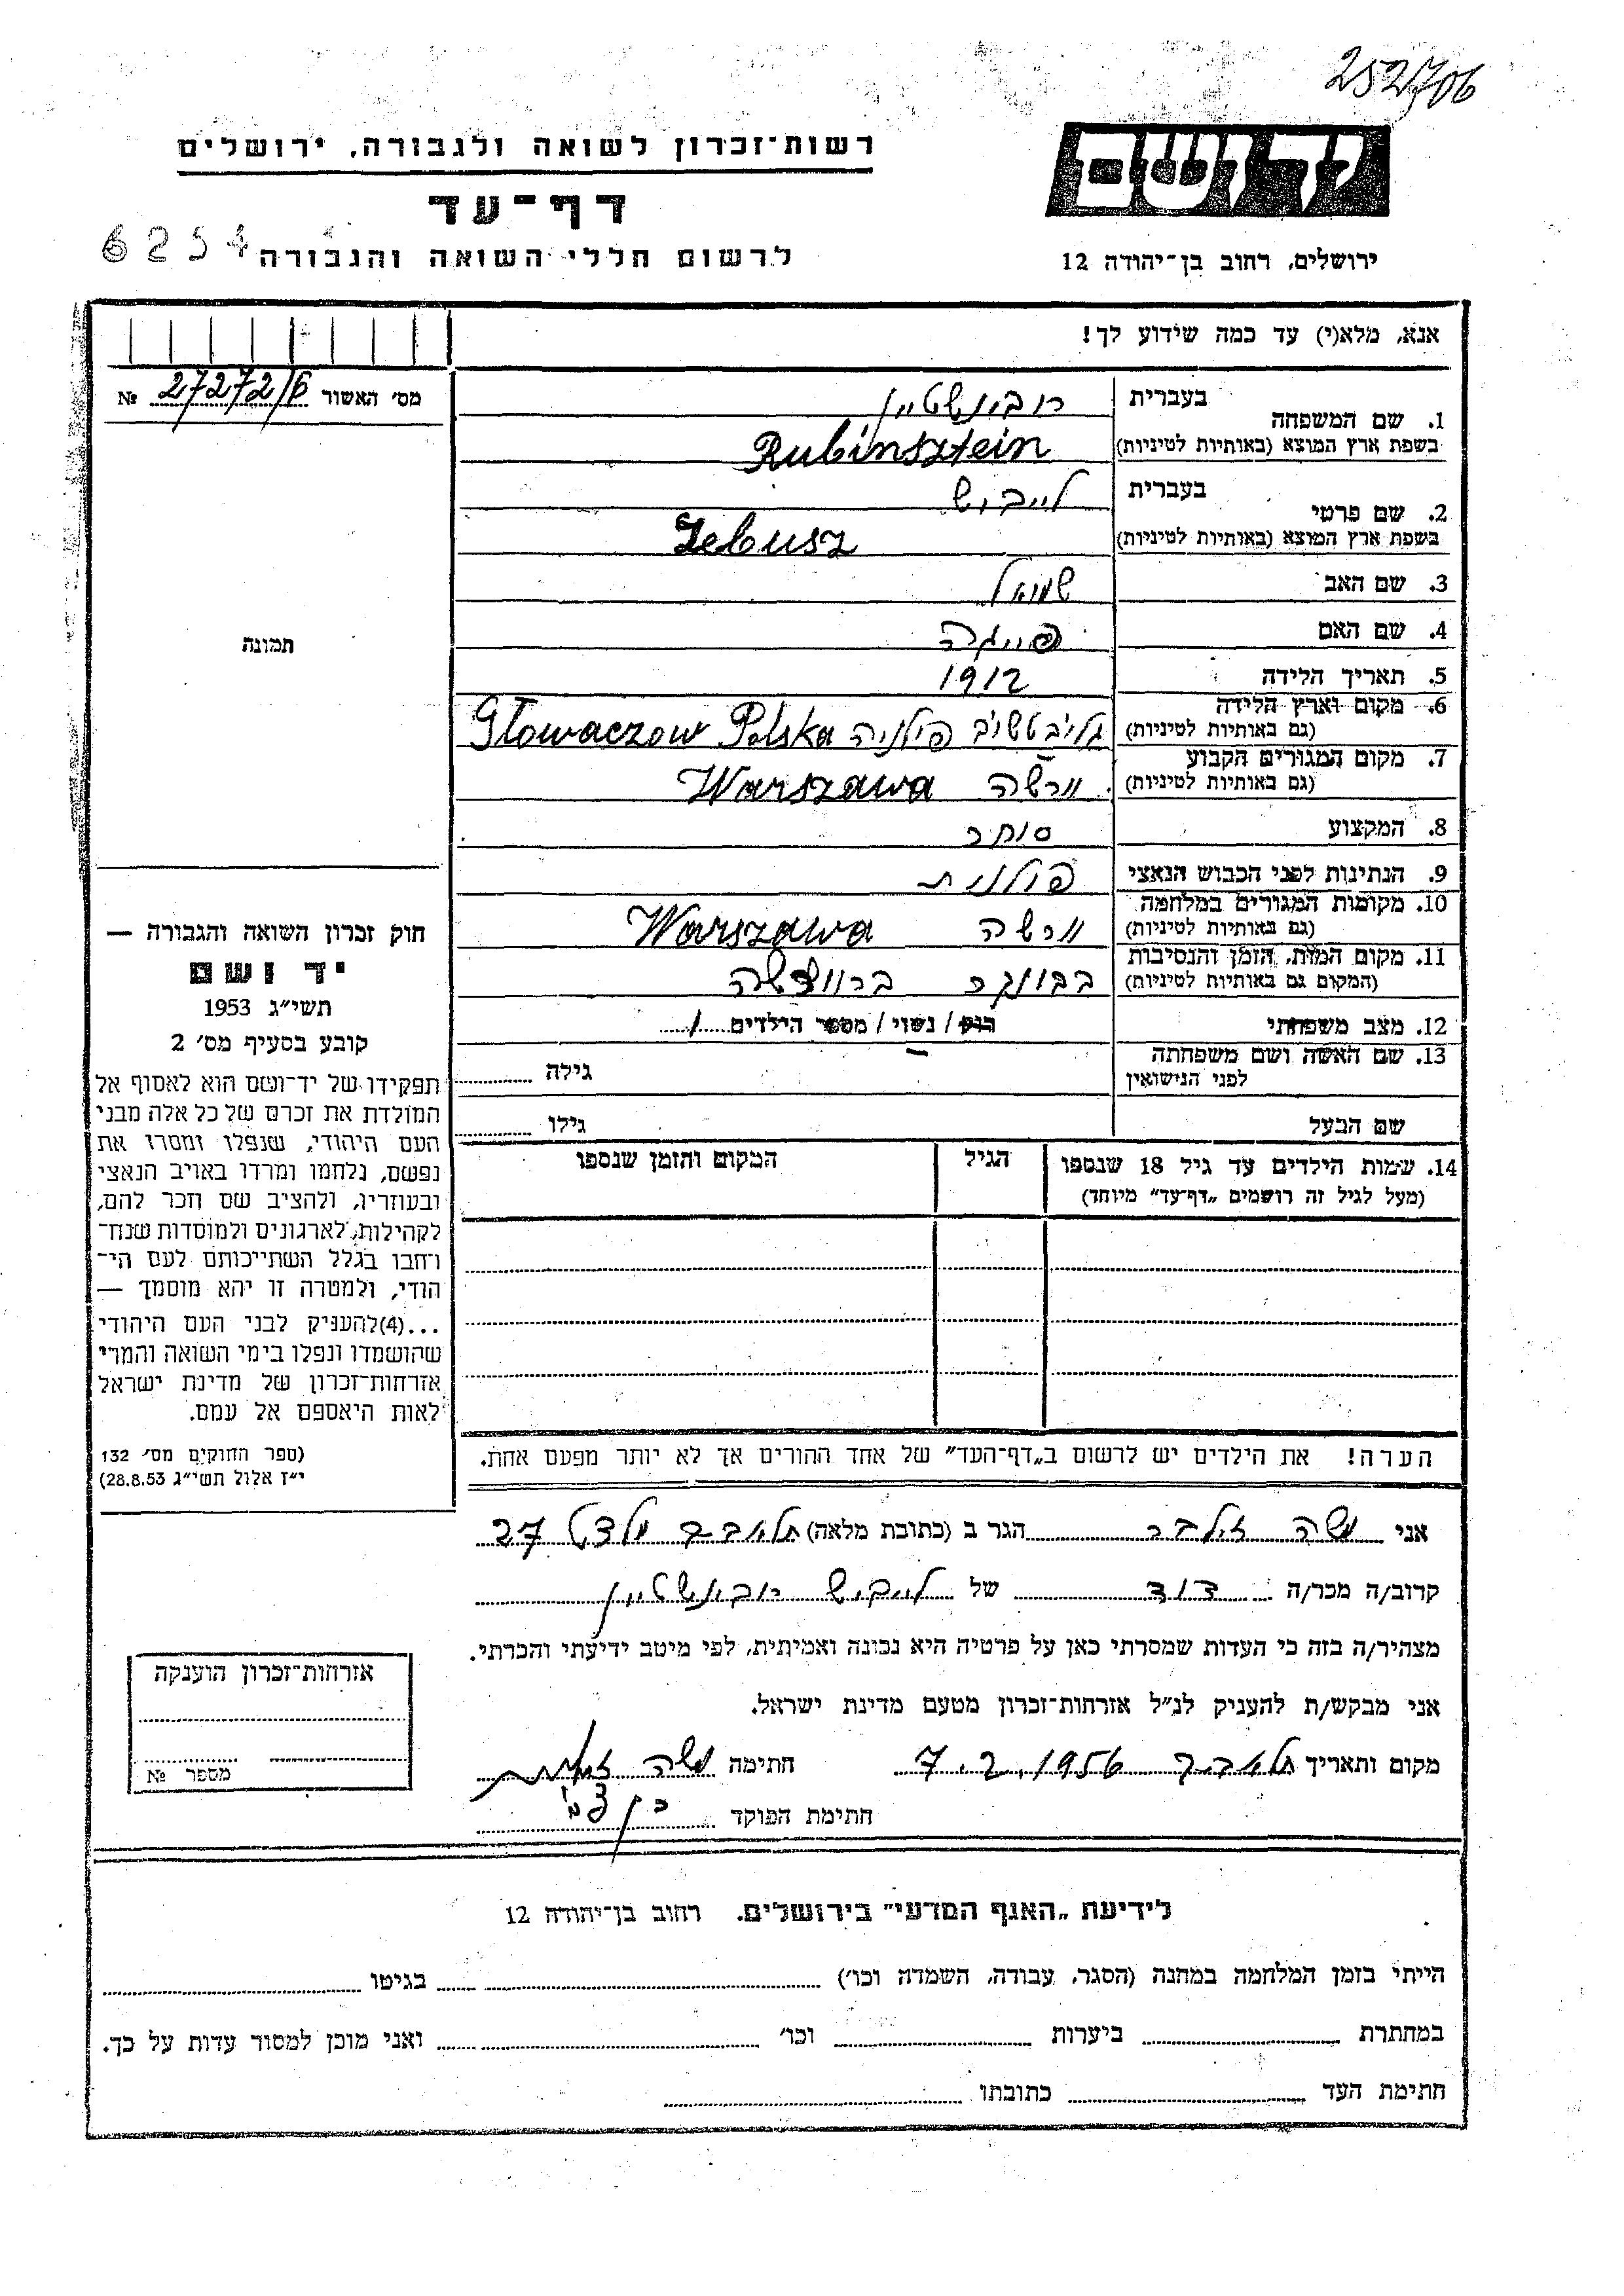 252706
יד ושם
רשות־זכרון לשואה ולגבורה, ירושלים
דף־עד
לרשום חללי השואה והגבורה
6254
ירושלים, רחוב בן־יהודה 12
אנא, מלא(י) עד כמה שידוע לך!
מס׳ האשור 27272/6 №
תמונה
1. שם המשפחה
בעברית רובינשטיין
בשפת ארץ המוצא (באותיות לטיניות) Rubinsztein
2. שם פרטי
בעברית לייבוש
בשפת ארץ המוצא (באותיות לטיניות) Lebusz
3. שם האב שמואל
4. שם האם פייגה
5. תאריך הלידה 1912
6. מקום וארץ הלידה
(גם באותיות לטיניות) פולניה Głowaczow Polska
7. מקום המגורים הקבוע
(גם באותיות לטיניות) ורשה Warszawa
8. המקצוע סוחר
9. הנתינות לפני הכבוש הנאצי פולנית
10. מקומות המגורים במלחמה
(גם באותיות לטיניות) ורשה Warszawa
11. מקום המות, הזמן והנסיבות
(המקום גם באותיות לטיניות) בבונקר בורשה
12. מצב משפחתי רווק / נשוי / מספר הילדים 1
13. שם האשה ושם משפחתה
לפני הנישואין גילה
שם הבעל גילו
14. שמות הילדים עד גיל 18 שנספו
(מעל לגיל זה רושמים „דף־עד” מיוחד)
הגיל
המקום והזמן שנספו
הערה! את הילדים יש לרשום ב„דף־העד” של אחד ההורים אך לא יותר מפעם אחת.
חוק זכרון השואה והגבורה —
יד ושם
תשי״ג 1953
קובע בסעיף מס׳ 2
תפקידו של יד־ושם הוא לאסוף אל
המולדת את זכרם של כל אלה מבני
העם היהודי, שנפלו ומסרו את
נפשם, נלחמו ומרדו באויב הנאצי
ובעוזריו, ולהציב שם וזכר להם,
לקהילות, לארגונים ולמוסדות שנח־
רבו בגלל השתייכותם לעם הי־
הודי, ולמטרה זו יהא מוסמך —
...(4) להעניק לבני העם היהודי
שהושמדו ונפלו בימי השואה והמרי
אזרחות־זכרון של מדינת ישראל
לאות היאספם אל עמם.
(ספר החוקים מס׳ 132
י״ז אלול תשי״ג 28.8.53)
אני משה זילבר הגר ב (כתובת מלאה) תל אביב 27
קרוב/ה מכר/ה דוד של לייבוש רובינשטיין
מצהיר/ה בזה כי העדות שמסרתי כאן על פרטיה היא נכונה ואמיתית, לפי מיטב ידיעתי והכרתי.
אני מבקש/ת להעניק לנ״ל אזרחות־זכרון מטעם מדינת ישראל.
מקום ותאריך תל אביב 7.2.1956 חתימה משה
חתימת הפוקד
אזרחות־זכרון הוענקה
מספר №
לידיעת „האגף המדעי” בירושלים. רחוב בן־יהודה 12
הייתי בזמן המלחמה במחנה (הסגר, עבודה, השמדה וכו׳) בגיטו
במחתרת ביערות וכו׳ ואני מוכן למסור עדות על כך.
חתימת העד כתובתו